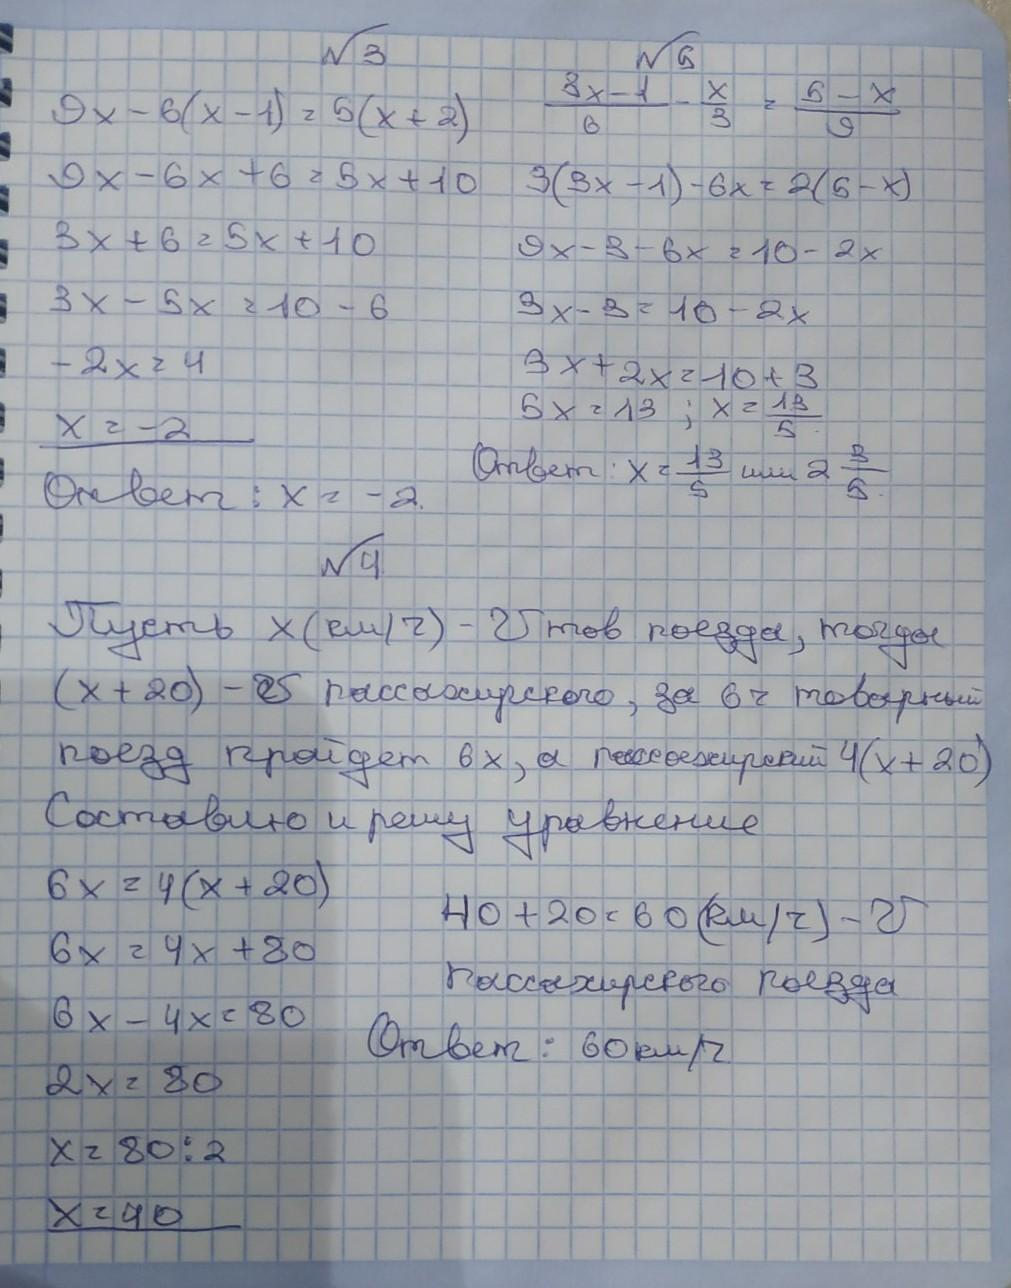 √3
9x - 6(x - 1) = 5(x + 2)
9x - 6x + 6 = 5x + 10
3x + 6 = 5x + 10
3x - 5x = 10 - 6
-2x = 4
x = -2
Ответ: x = -2.
√5
3x-1/6 - x/3 = 5-x/9
3(3x - 1) - 6x = 2(5 - x)
9x - 3 - 6x = 10 - 2x
3x - 3 = 10 - 2x
3x + 2x = 10 + 3
5x = 13 ; x = 13/5.
Ответ: x = 13/5 или 2 3/5.
√4
Пусть x(км/ч) - V тов поезда, тогда
(x + 20) - V пассажирского, за 6ч товарный
поезд пройдет 6x, а пассажирский 4(x + 20)
Составлю и решу уравнение
6x = 4(x + 20)
6x = 4x + 80
6x - 4x = 80
2x = 80
x = 80 : 2
x = 40
40 + 20 = 60 (км/ч) - V
пассажирского поезда
Ответ: 60км/ч